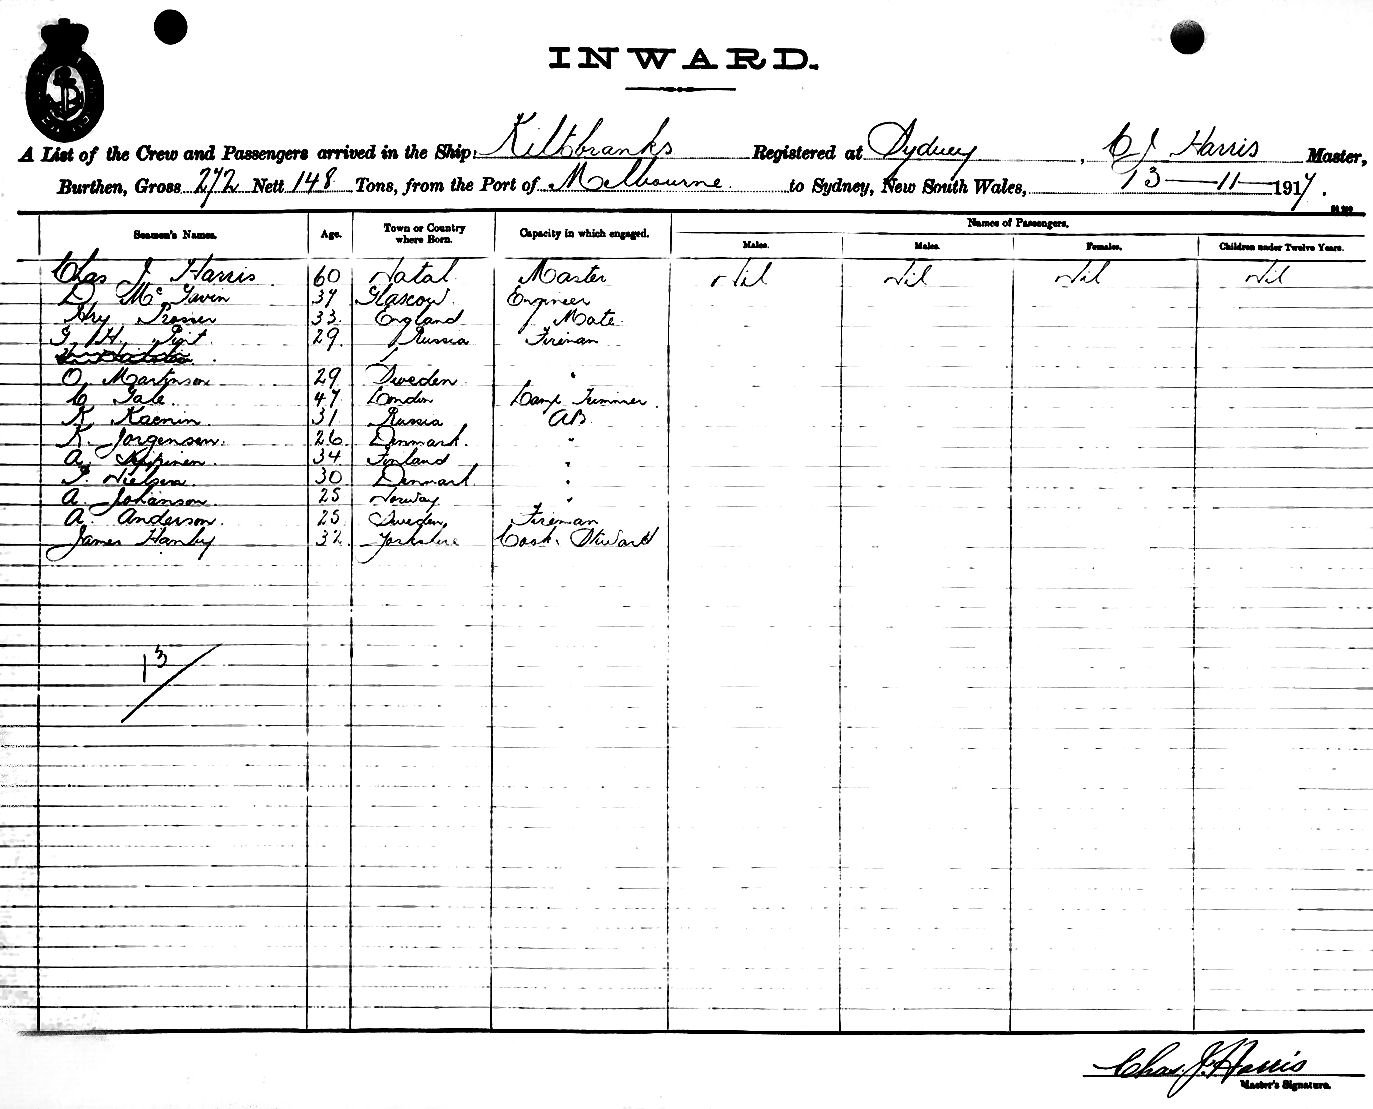 INWARD.
A List of the Crew and Passengers arrived in the Ship, Kiltobranks Registered at Sydney, C J Harris Master,
Burthen, Gross 272 Nett 148 Tons, from the Port of Melbourne to Sydney, New South Wales, 13—11—1917.
Seamen's Names. Age. Town or Country where Born. Capacity in which engaged. Names of Passengers.
Males. Males. Females. Children under Twelve Years.
Chas J. Harris 60 Natal Master Nil Nil Nil Nil
D. McGavin 37 Glascow Engineer
Hry Prosser 33 England Mate
29 Russia Fireman
O Martinson 29 Sweden "
C Gale 47 London Trimmer
K 31 Russia AB
K. Jorgensen. 26 Denmark. "
A. 34 Finland "
Nielsen 30 Denmark "
A. Johanson 25 Norway "
A. Anderson. 25 Sweden, Fireman
James Hanby 32 Yorkshire Cook. Steward
13
Chas. J. Harris
Master's Signature.